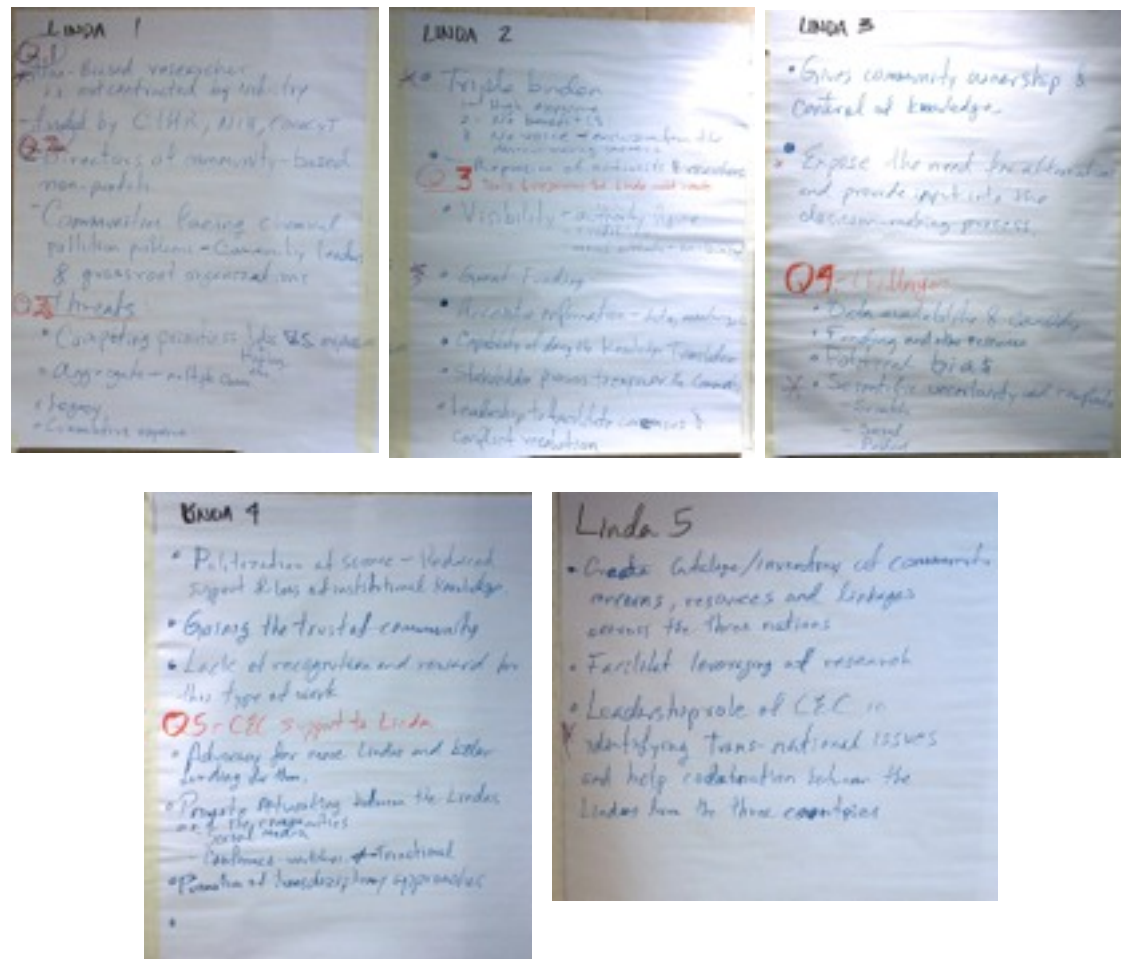 LINDA 1
Q1
- Biased researcher
is not contracted by industry
- funded by CIHR, NIH,
Q2
Directors of community-based
non-profit
- Communities facing chemical
pollution problems - Community leaders
& grassroot organizations
Q3 Threats
• Competing priorities
• Aggregate - multiple
• Legacy
• Cumulative exposure
LINDA 2
• Triple burden
1 - High exposure
2 - No benefits
3 No voice
decision-making process
Repression of activists & researchers
3
• Visibility - authority figure
• Grant Funding
• Accurate information -
• Capability of doing the Knowledge Translation
• Stakeholder process to empower the community
• Leadership to facilitate consensus &
conflict resolution
LINDA 3
• Gives community ownership &
control of knowledge.
• Expose the need for alternatives
and provide input into the
decision-making process.
Q4 - Challenges
• Data availability &
• Funding and other resources
• bias
• Scientific uncertainty and
- Social
- Political
LINDA 4
• Politization of science - Reduced
support & loss of institutional knowledge.
• Gaining the trust of community
• Lack of recognition and reward for
this type of work
Q5 - CEC support to Linda
• Advocacy for more Lindas and better
funding for them.
• Promote networking between the Lindas
and the communities
- Social media
- Conference
• Promotion of transdisciplinary approaches
•
Linda 5
• Create Catalogue/inventory of community
concerns, resources and linkages
across the three nations
• Facilitat leveraging of research
• Leadership role of CEC in
identifying trans-national issues
and help collaboration between the
Lindas from the three countries